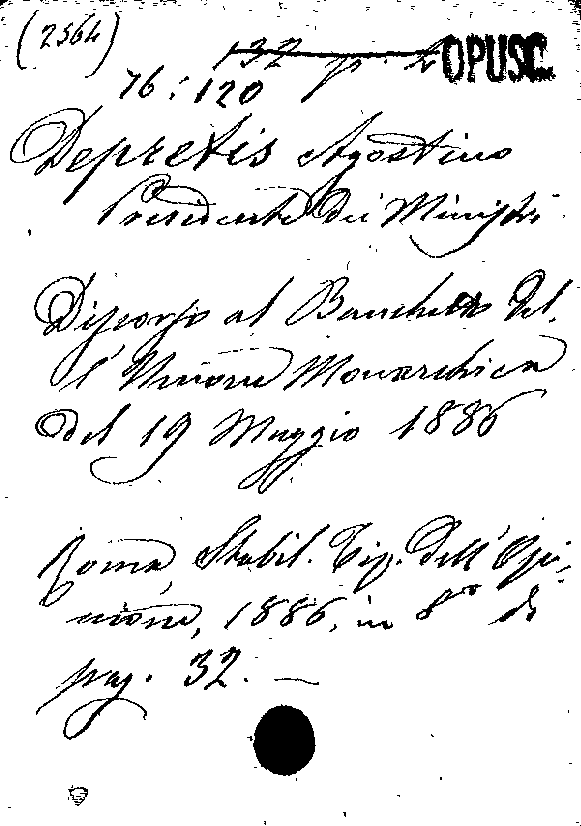 (2564)
132 p. 2 OPUSC.
76:120
Depretis Agostino
Presidente dei Ministri
Discorso al Banchetto del
l'Unione Monarchica
del 19 Maggio 1886
Roma, Stabil. Tip. dell'Opi-
nione, 1886, in 8º di
pag. 32. —